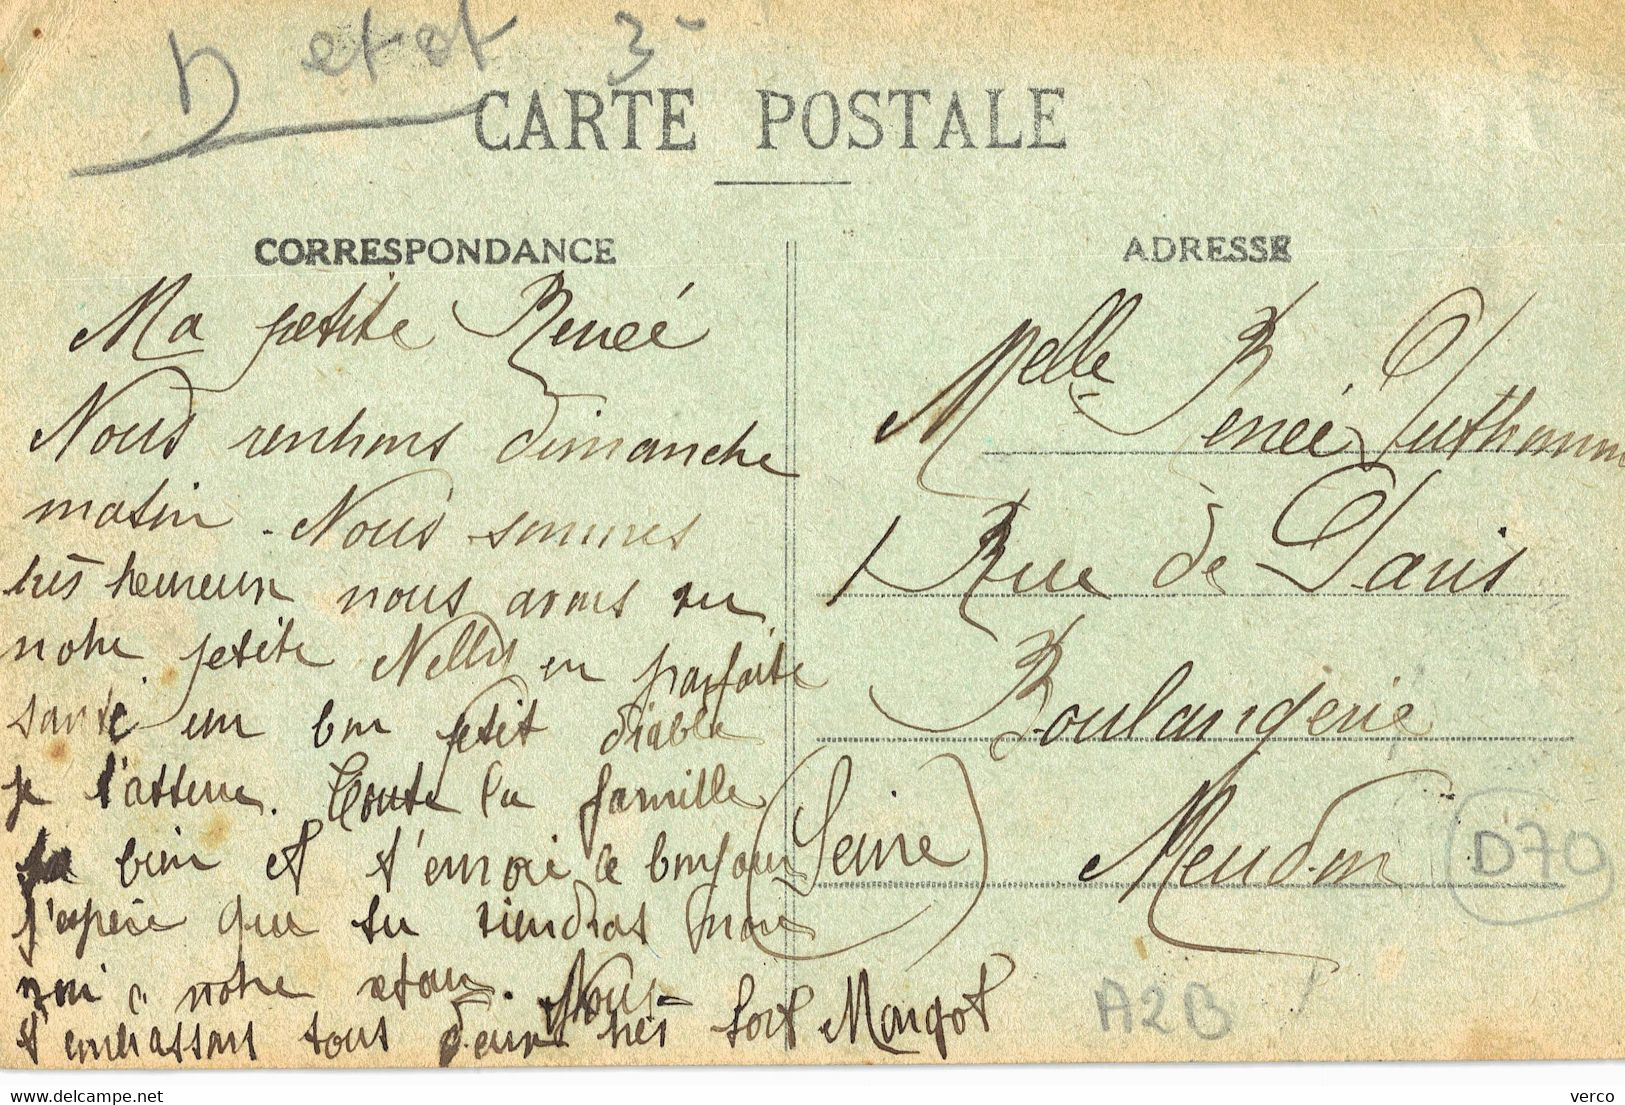 D etat 3-
CARTE POSTALE
CORRESPONDANCE
Ma petite Renée
Nous rentrons dimanche
matin. Nous sommes
très heureux nous avons vu
notre petite Nelly en parfaite
santé un bon petit diable
je t'assure. Toute la famille
va bien et t'envoie le bonjour
j'espère que tu viendras nous
voir à notre retour. Nous
t'embrassons tous deux très fort Margot
ADRESSE
Melle Renée
1 Rue de Paris
Boulangerie
Meudon
(Seine)
D70
A2B
verco